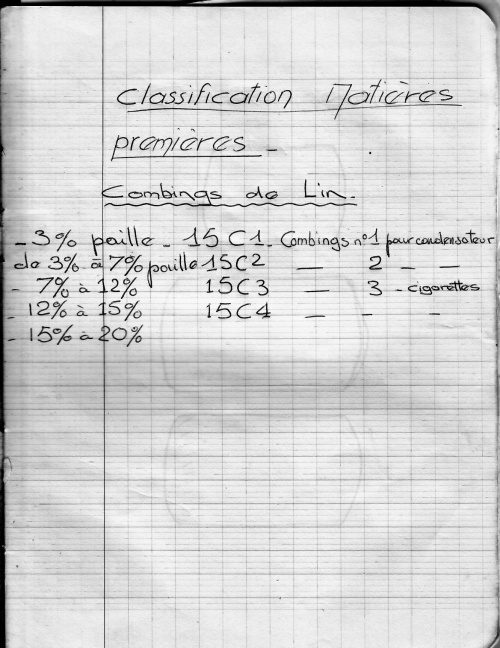 Classification Matières
premières -
Combings de Lin.
- 3% paille - 15C1. Combings n°1 pour condensateur
de 3% à 7% paille 15C2 — 2 — —
- 7% à 12% 15C3 — 3 - cigarettes
- 12% à 15% 15C4 — - —
- 15% à 20%